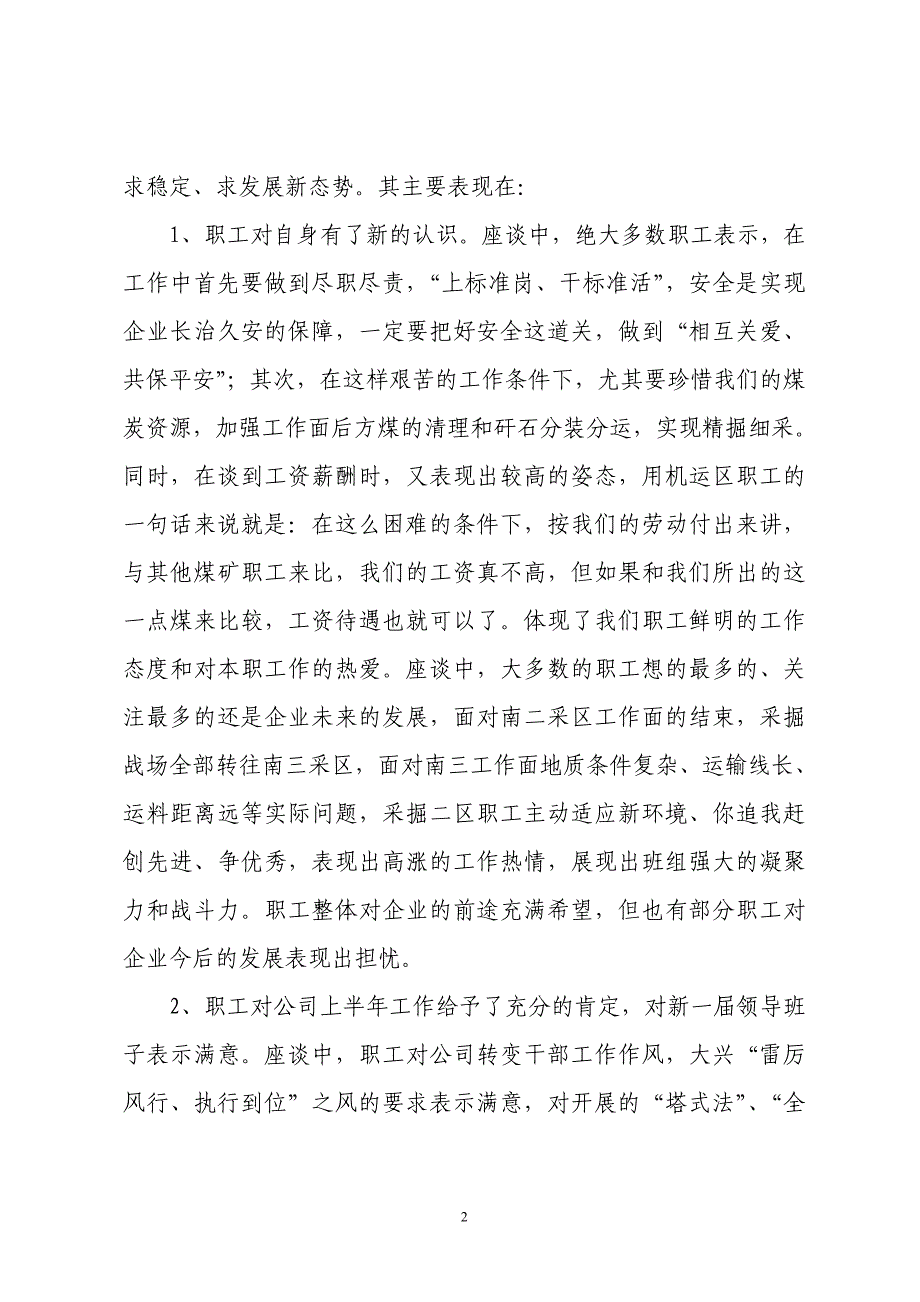 求稳定、求发展新态势。其主要表现在：
1、职工对自身有了新的认识。座谈中，绝大多数职工表示，在
工作中首先要做到尽职尽责，“上标准岗、干标准活”，安全是实现
企业长治久安的保障，一定要把好安全这道关，做到“相互关爱、
共保平安”；其次，在这样艰苦的工作条件下，尤其要珍惜我们的煤
炭资源，加强工作面后方煤的清理和矸石分装分运，实现精掘细采。
同时，在谈到工资薪酬时，又表现出较高的姿态，用机运区职工的
一句话来说就是：在这么困难的条件下，按我们的劳动付出来讲，
与其他煤矿职工来比，我们的工资真不高，但如果和我们所出的这
一点煤来比较，工资待遇也就可以了。体现了我们职工鲜明的工作
态度和对本职工作的热爱。座谈中，大多数的职工想的最多的、关
注最多的还是企业未来的发展，面对南二采区工作面的结束，采掘
战场全部转往南三采区，面对南三工作面地质条件复杂、运输线长、
运料距离远等实际问题，采掘二区职工主动适应新环境、你追我赶
创先进、争优秀，表现出高涨的工作热情，展现出班组强大的凝聚
力和战斗力。职工整体对企业的前途充满希望，但也有部分职工对
企业今后的发展表现出担忧。
2、职工对公司上半年工作给予了充分的肯定，对新一届领导班
子表示满意。座谈中，职工对公司转变干部工作作风，大兴“雷厉
风行、执行到位”之风的要求表示满意，对开展的“塔式法”、“全
2